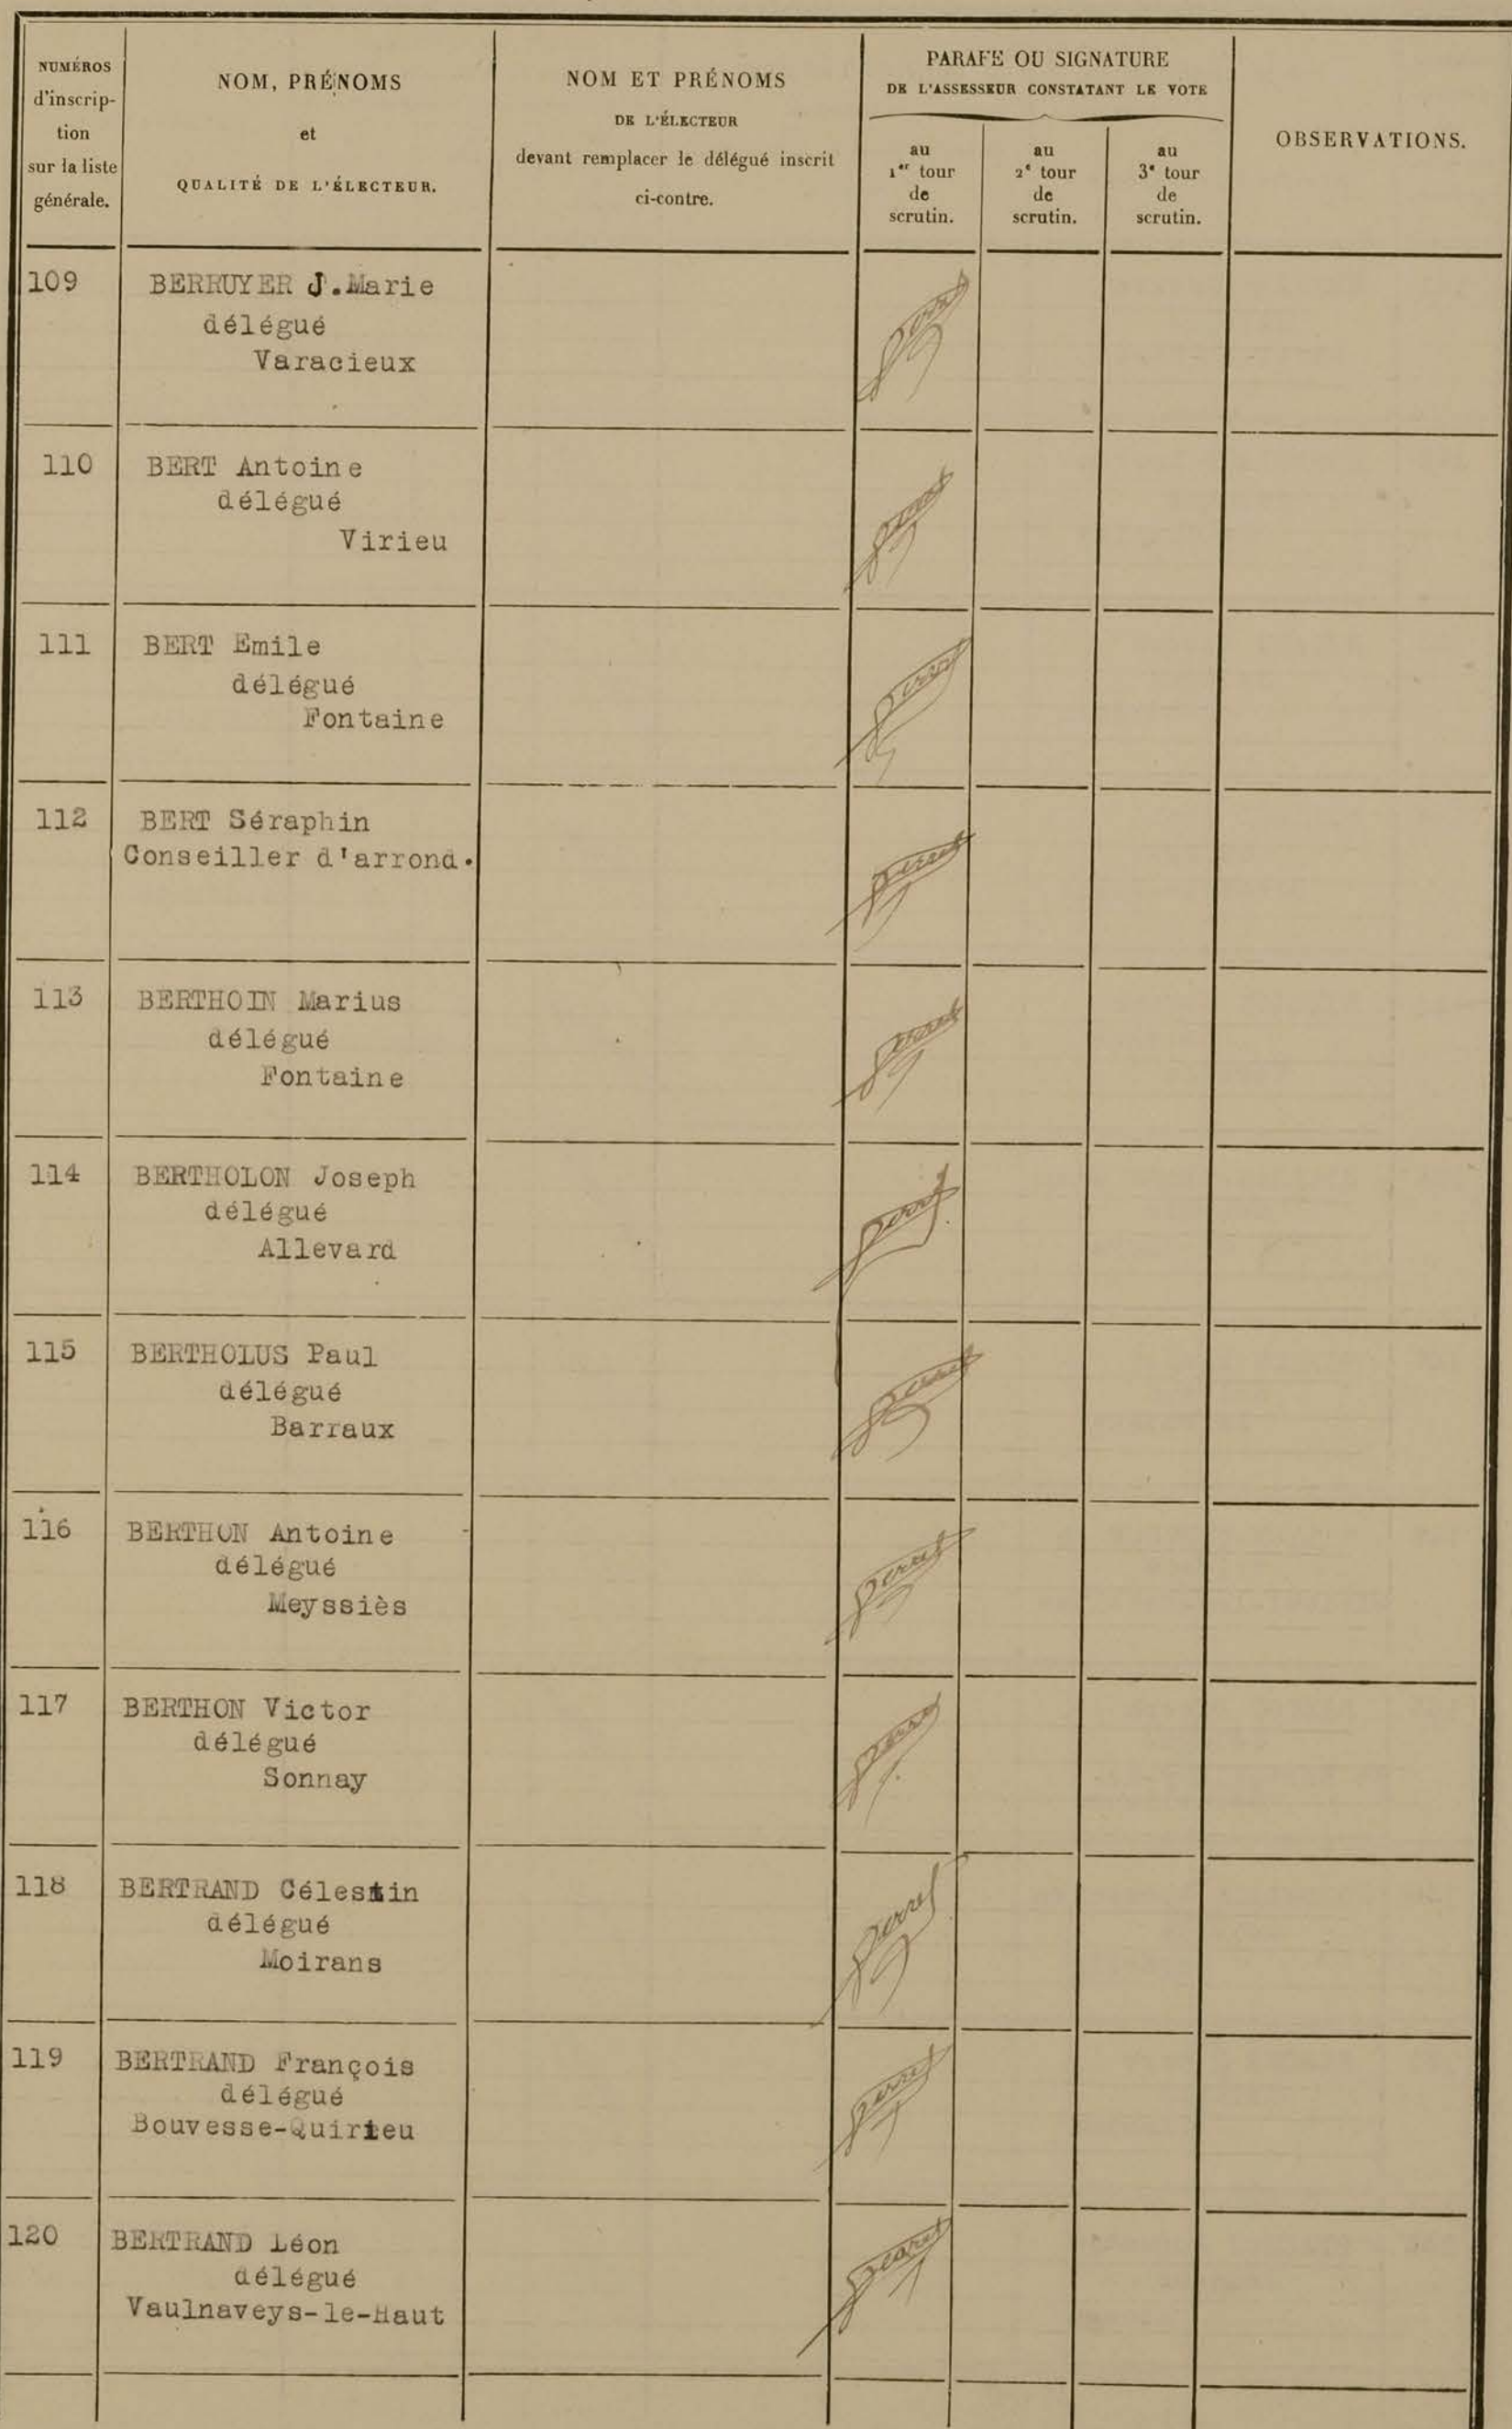 NUMÉROS
d'inscrip-
tion
sur la liste
générale.
NOM, PRÉNOMS
et
QUALITÉ DE L'ÉLECTEUR.
NOM ET PRÉNOMS
DE L'ÉLECTEUR
devant remplacer le délégué inscrit
ci-contre.
PARAFE OU SIGNATURE
DE L'ASSESSEUR CONSTATANT LE VOTE
au
1er tour
de
scrutin.
au
2e tour
de
scrutin.
au
3e tour
de
scrutin.
OBSERVATIONS.
109 BERRUYER J.Marie
délégué
Varacieux
110 BERT Antoine
délégué
Virieu
111 BERT Emile
délégué
Fontaine
112 BERT Séraphin
Conseiller d'arrond.
113 BERTHOIN Marius
délégué
Fontaine
114 BERTHOLON Joseph
délégué
Allevard
115 BERTHOLUS Paul
délégué
Barraux
116 BERTHON Antoine
délégué
Meyssiès
117 BERTHON Victor
délégué
Sonnay
118 BERTRAND Célestin
délégué
Moirans
119 BERTRAND François
délégué
Bouvesse-Quirieu
120 BERTRAND Léon
délégué
Vaulnaveys-le-Haut